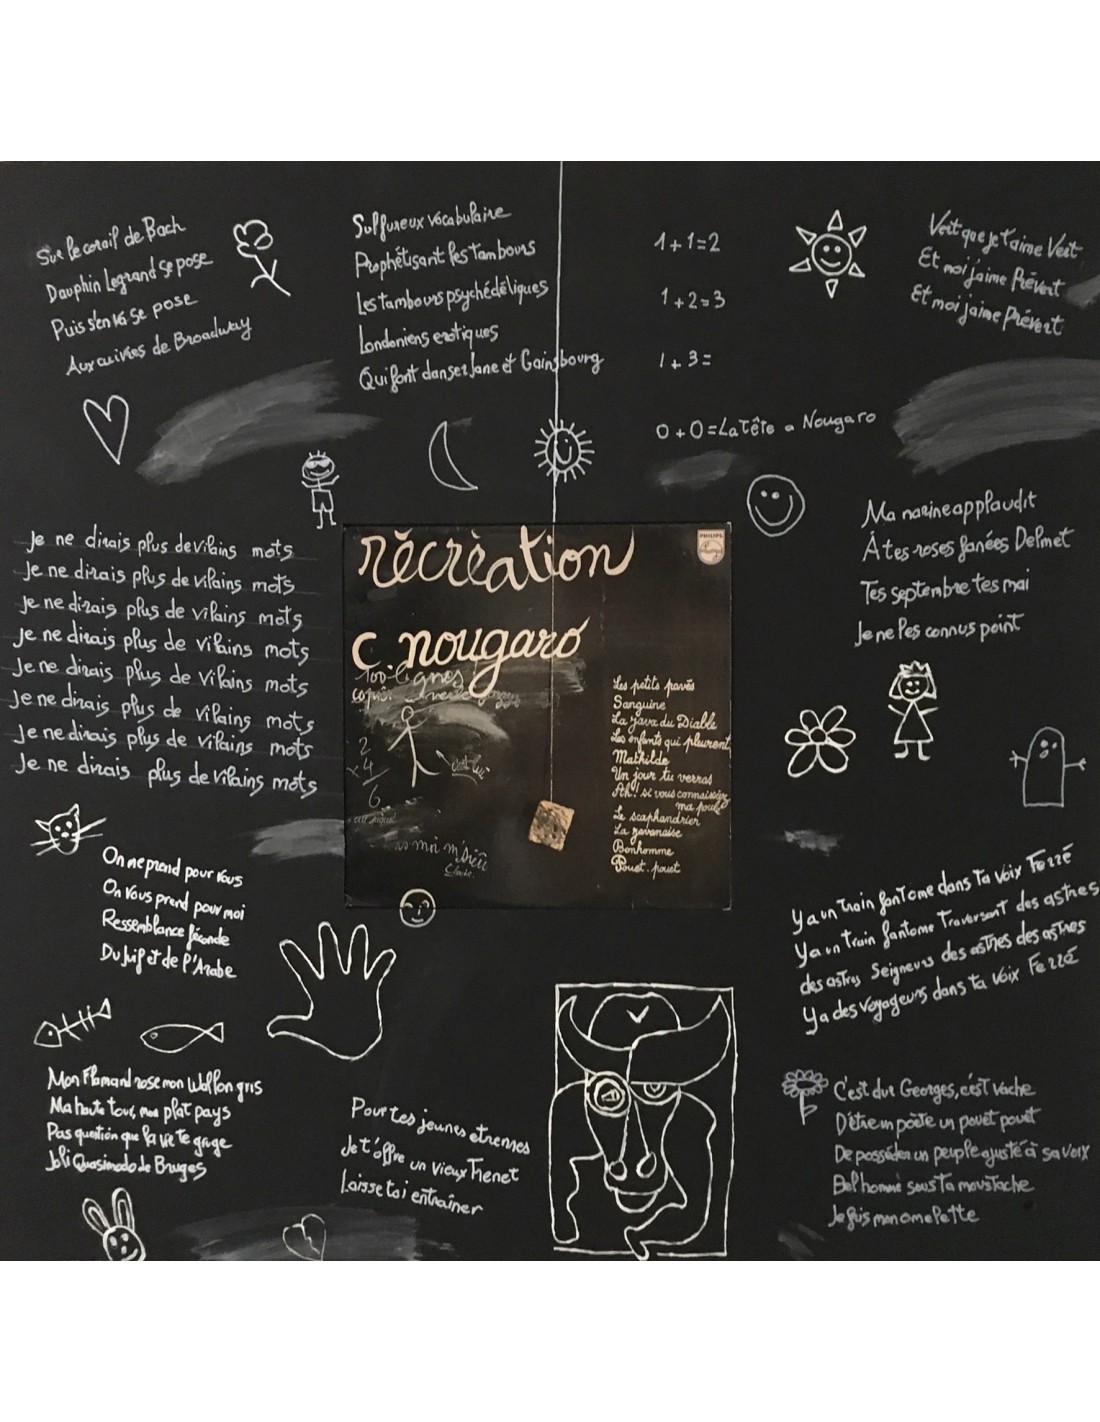 Sur le corail de Bach
Dauphin Legrand se pose
Puis s'en va se pose
Aux cuivres de Broadway
Sulfureux vocabulaire
Prophétisant les tambours
Les tambours psychédéliques
Londoniens erotiques
Qui font danser Jane et Gainsbourg
1+1=2
1+2=3
1+3=
0+0=La Tête a Nougaro
Vert que je t'aime Vert
Et moi j'aime Prévert
Et moi j'aime Prévert
Ma narine applaudit
À tes roses fanées Delmet
Tes septembre tes mai
Je ne les connus point
Je ne dirais plus de vilains mots
Je ne dirais plus de vilains mots
Je ne dirais plus de vilains mots
Je ne dirais plus de vilains mots
Je ne dirais plus de vilains mots
Je ne dirais plus de vilains mots
Je ne dirais plus de vilains mots
Je ne dirais plus de vilains mots
récréation
PHILIPS
C. nougaro
100 lignes
2
x4
6
c'est lui
moi m'sieu
Claude.
Les petits pavés
Sanguine
La java du Diable
Les enfants qui pleurent
Mathilde
Un jour tu verras
Ah! si vous connaissiez
ma poule
Le scaphandrier
La javanaise
Bonhomme
Pouet. pouet
On me prend pour vous
On vous prend pour moi
Ressemblance féconde
Du Juif et de l'Arabe
Y a un train fantome dans ta voix Ferré
Y a un train fantome Traversant des astres
des astres Seigneurs des astres des astres
Y a des voyageurs dans ta voix Ferré
Mon Flamand rose mon Wallon gris
Ma haute tour, mon plat pays
Pas question que la vie te gruge
Joli Quasimodo de Bruges
Pour tes jeunes etrennes
Je t'offre un vieux Trenet
Laisse toi entraîner
C'est dur Georges, c'est vache
D'être un poëte un pouet pouet
De posséder un peuple ajusté à sa voix
Bel homme sous ta moustache
Je suis mon omelette